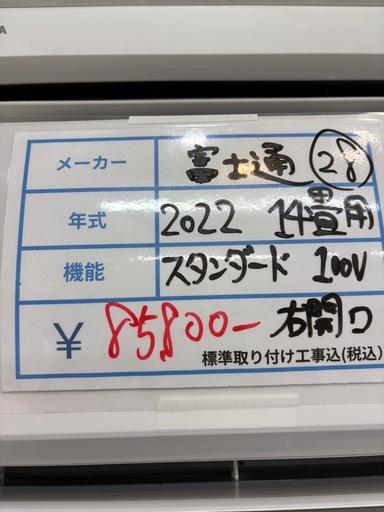 メーカー 富士通 28
年式 2022 14畳用
機能 スタンダード 100V
¥ 85800- 右開口
標準取り付け工事込(税込)